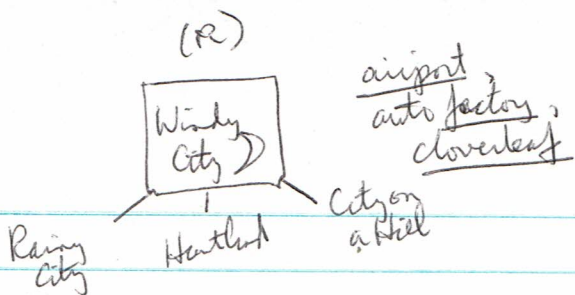 (R)
Windy
City
airport,
auto factory,
cloverleaf
Rainy
City
Heartland
City on
a Hill